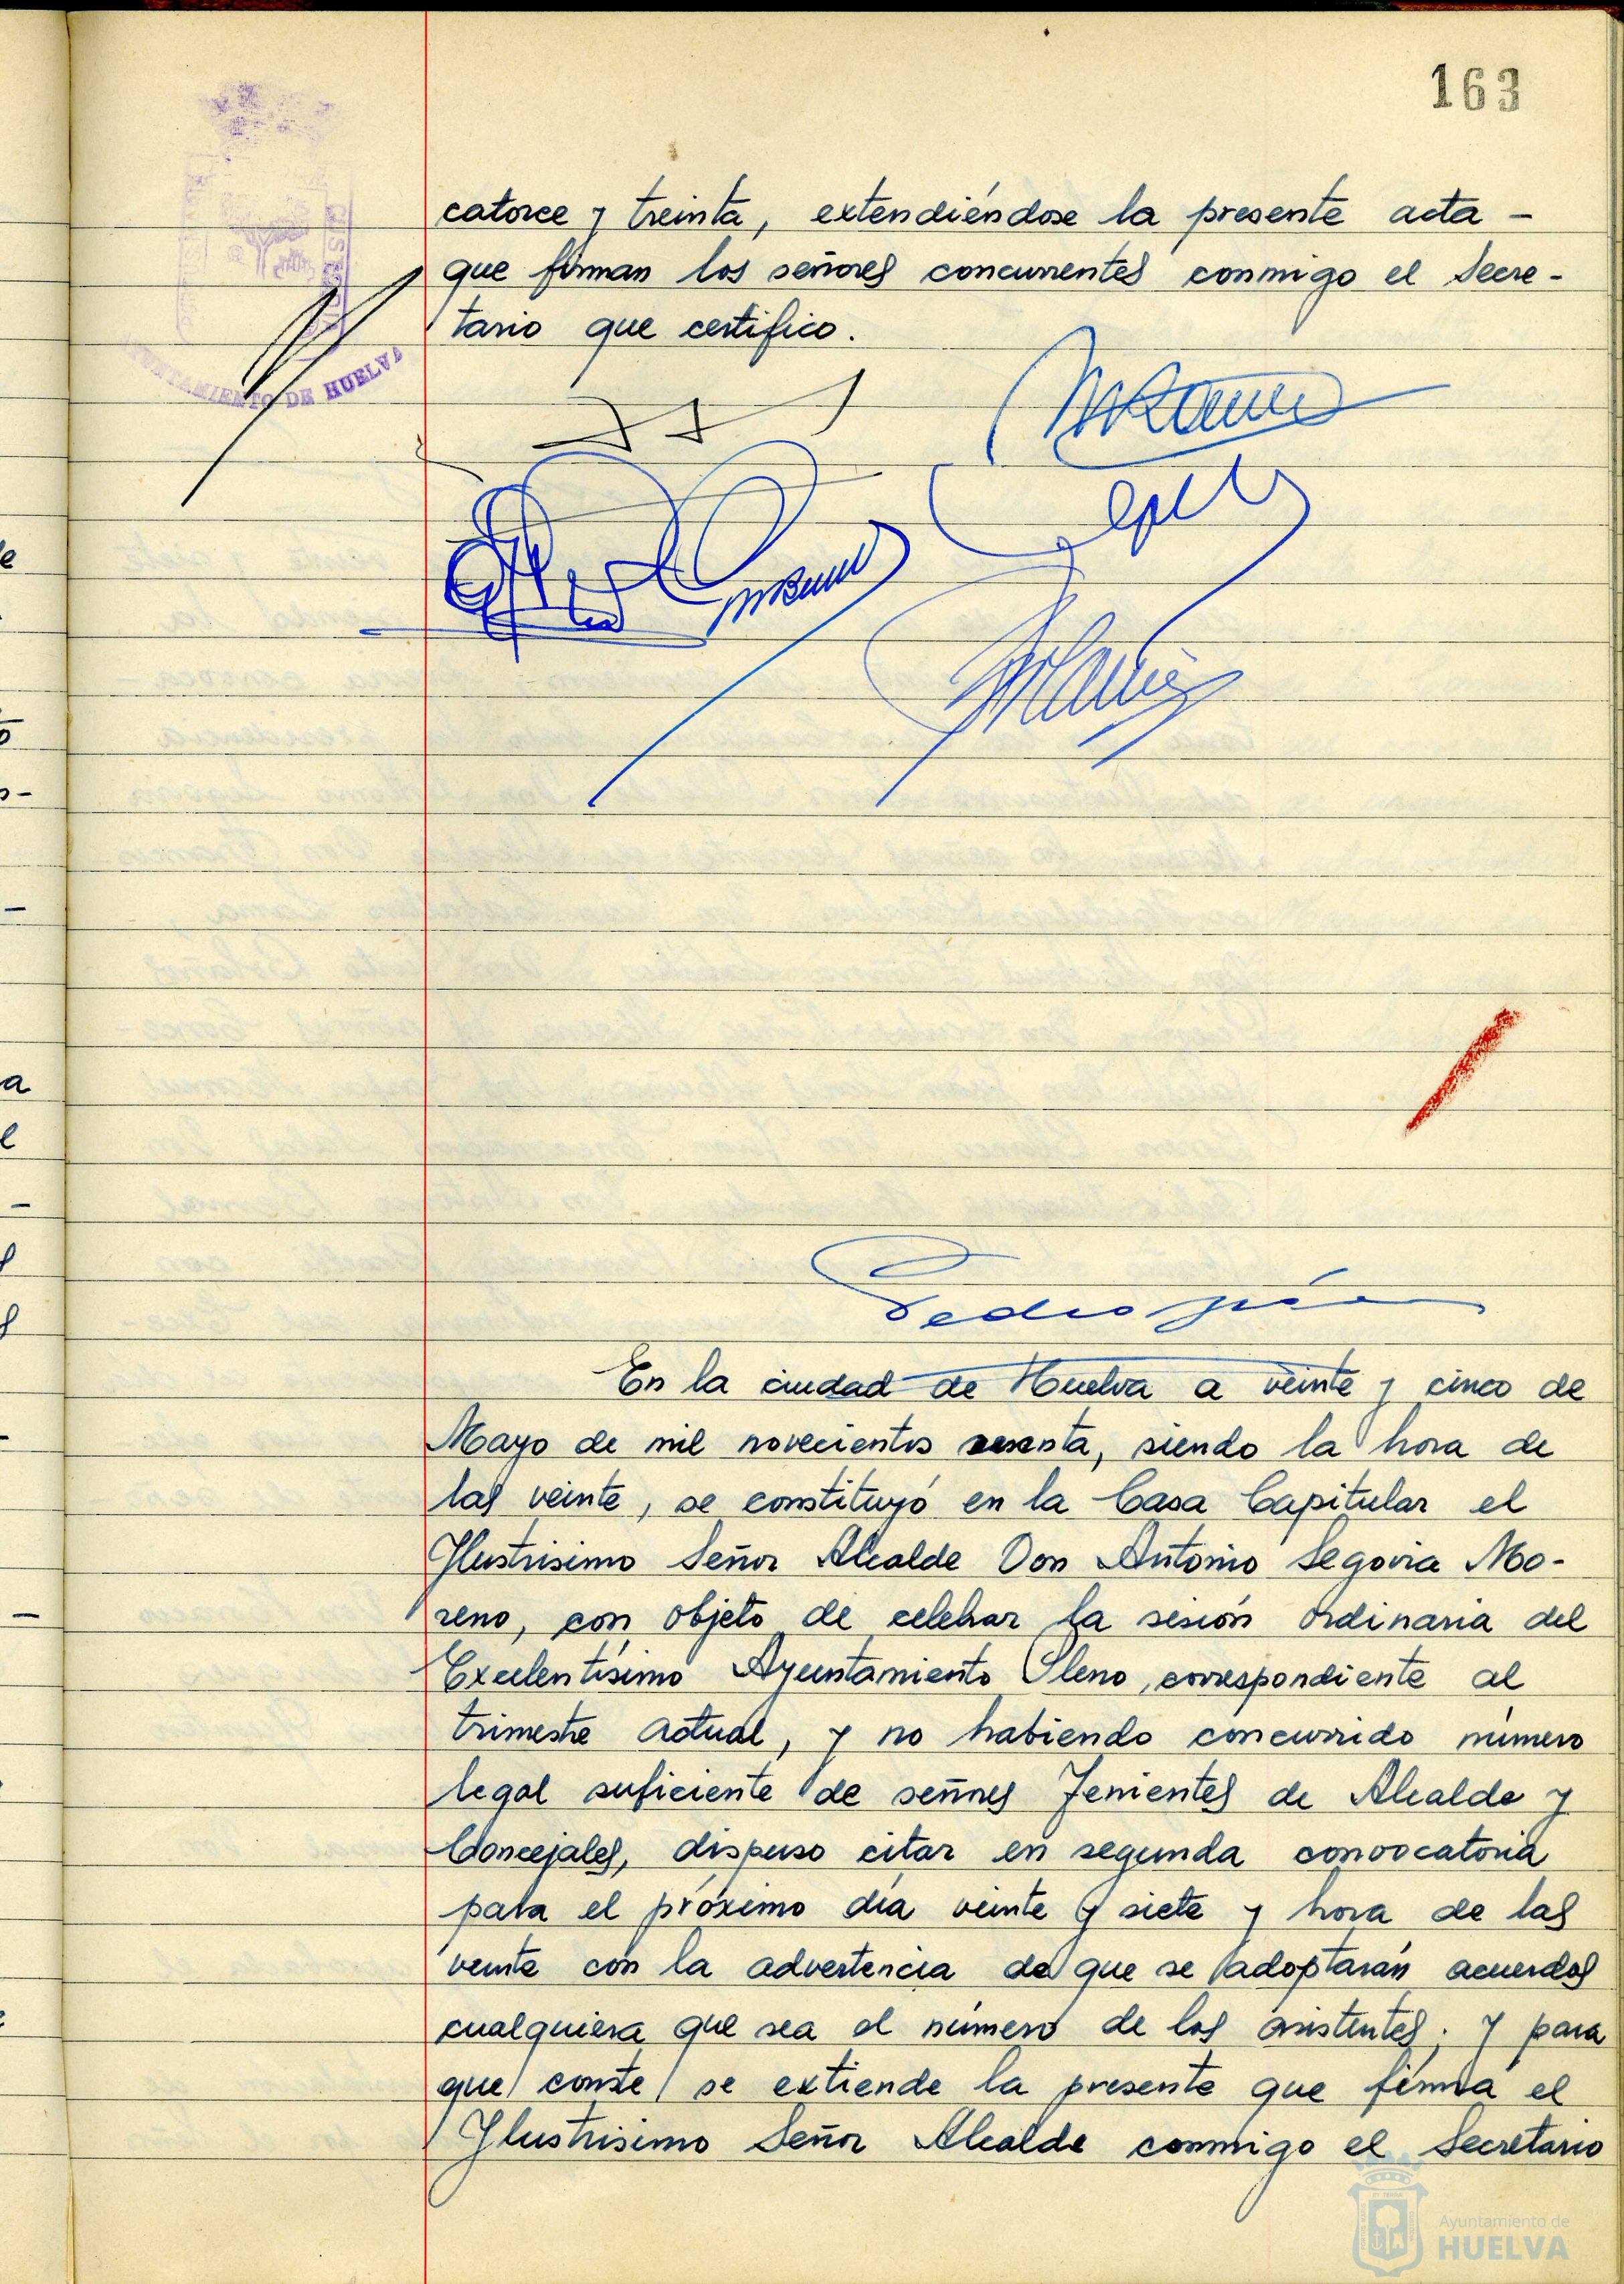 163
catorce y treinta, extendiéndose la presente acta -
que firman los señores concurrentes conmigo el Secre-
tario que certifico.
AYUNTAMIENTO DE HUELVA
En la ciudad de Huelva a veinte y cinco de
Mayo de mil novecientos sesenta, siendo la hora de
las veinte, se constituyó en la Casa Capitular el
Ylustrisimo Señor Alcalde Don Antonio Segovia Mo-
reno, con objeto de celebrar la sesión ordinaria del
Excelentísimo Ayuntamiento Pleno, correspondiente al
trimestre actual, y no habiendo concurrido número
legal suficiente de señores Tenientes de Alcalde y
Concejales, dispuso citar en segunda convocatoria
para el próximo día veinte y siete y hora de las
veinte con la advertencia de que se adoptarán acuerdos
cualquiera que sea el número de los asistentes; y para
que conste se extiende la presente que firma el
Ylustrisimo Señor Alcalde conmigo el Secretario
Ayuntamiento de
HUELVA